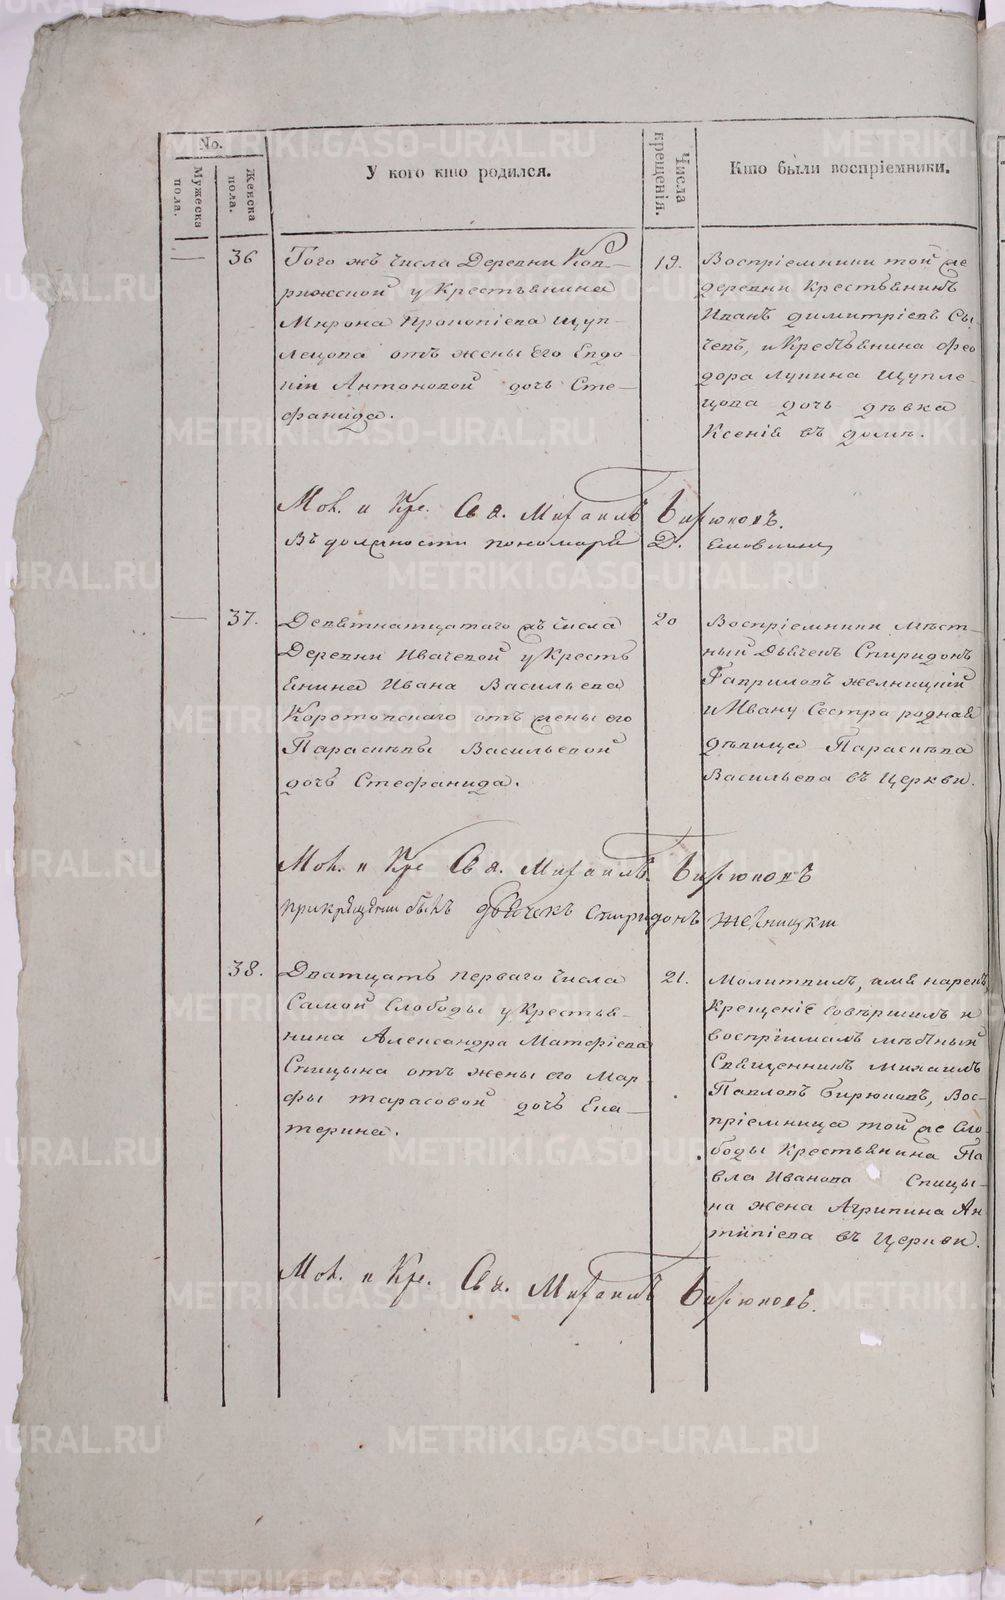 No.
Мужеска пола.
Женска пола.
У кого кто родился.
Числа крещенія.
Кто были воспріемники.
36
Того жъ числа Деревни Ков-
рижской у Крестьянина
Мирона Прокопіева Щуп-
лецова отъ жены его Евдо
кіи Антоновой дочь Сте-
фанида.
19.
Воспріемники той же
деревни крестьянинъ
Иванъ димитріевъ Сы
чевъ, и Крестьянина Фео
дора Лупина Щупле-
цова дочь дѣвка
Ксенія въ домѣ.
Мол. и Кре. Свя. Михаилъ Бирюковъ.
Въ должности пономаря Д.
37.
Девятнатцатаго жъ числа
Деревни Ивачевой у Кресть
янина Ивана Васильева
Коротовскаго отъ жены его
Парасковьи Васильевой
дочь Стефанида.
20
Воспріемники Мѣст-
ный Дьячекъ Спиридонъ
Гавриловъ желницкій
и Ивану Сестра родная
дѣвица Парасковья
Васильева въ Церкви.
Мол. и Кре Свя. Михаилъ Бирюковъ
при крещении былъ дьячекъ Спиридонъ Желницки
38.
Дватцать перваго числа
Самой Слободы у Крестья-
нина Александра Матфіева
Спицына отъ жены его Мар
фы тарасовой дочь Ека-
терина.
21.
Молитвилъ, имя нарекъ
Крещеніе совершилъ и
воспріималъ мѣстный
Священникъ Михаилъ
Павловъ Бирюковъ, Вос-
пріемница той же Сло-
боды Крестьянина Па
вла Иванова Спицы-
на жена Агрипина Ан
типіева въ Церкви.
Мол. и Кре. Свя. Михаилъ Бирюковъ.
METRIKI.GASO-URAL.RU